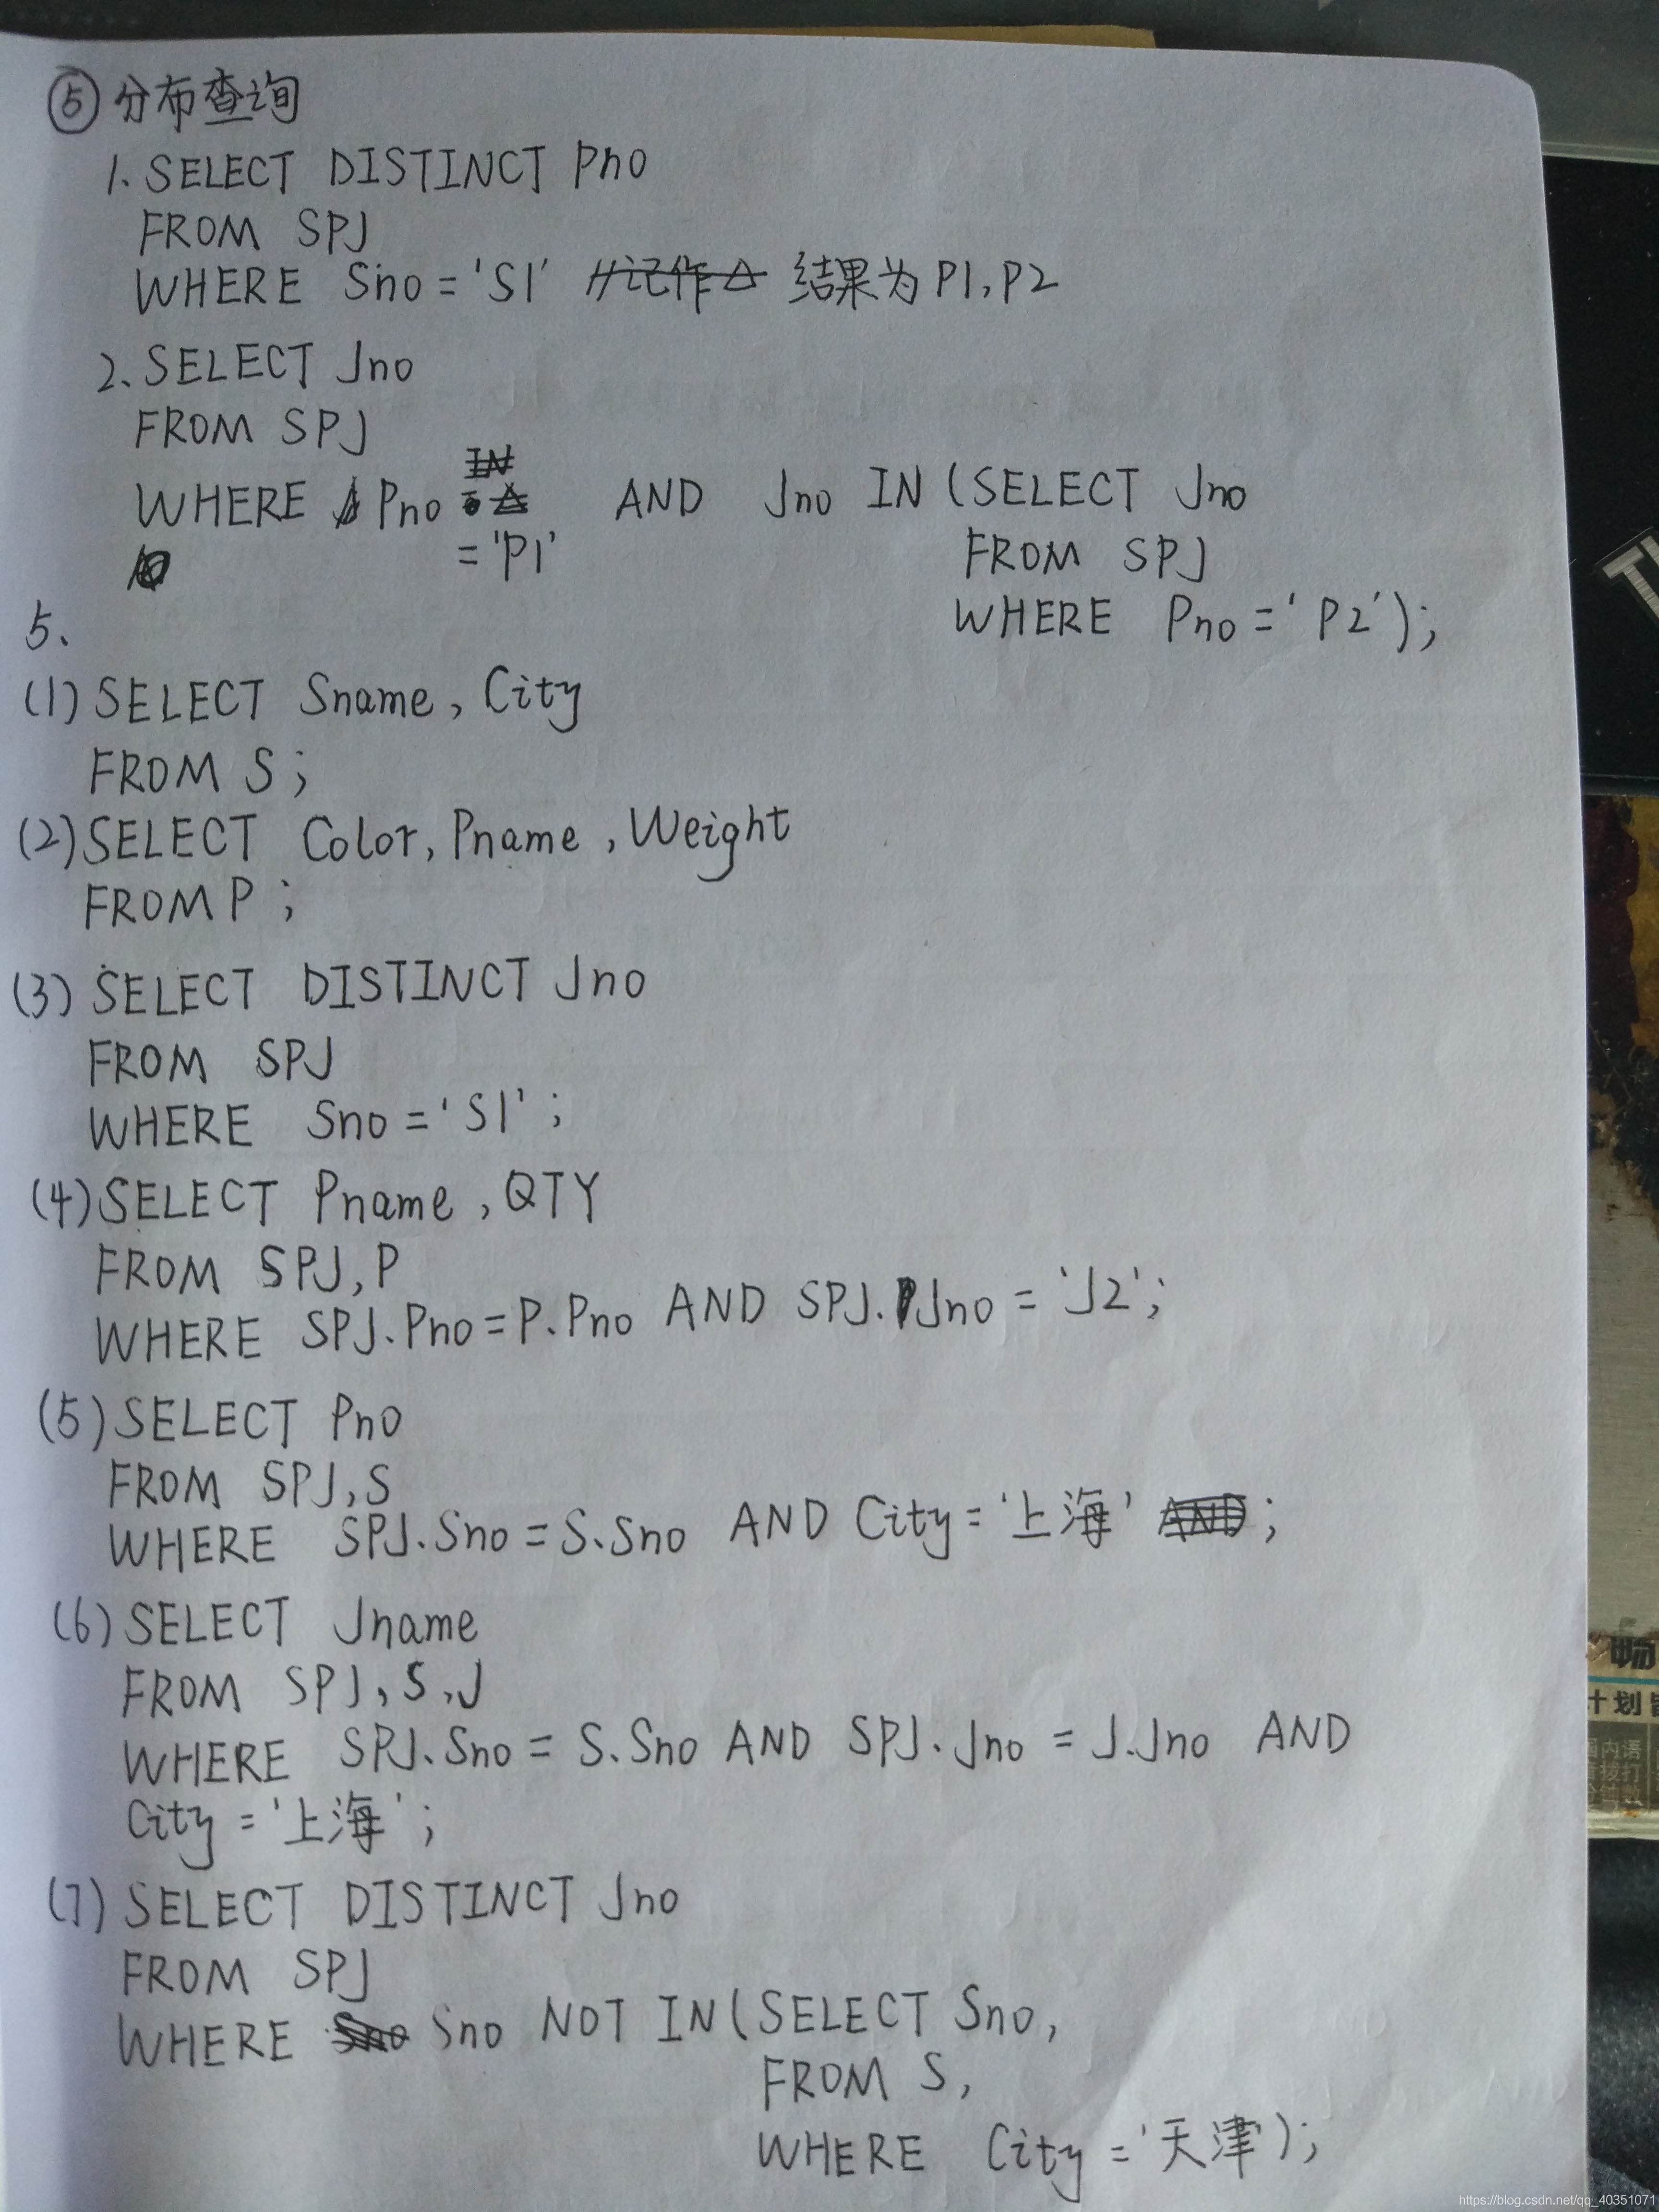 ⑤分布查询
1. SELECT DISTINCT Pno
FROM SPJ
WHERE Sno = 'S1' //记作△ 结果为P1,P2
2. SELECT Jno
FROM SPJ
IN
WHERE Pno △ AND Jno IN (SELECT Jno
= 'P1' FROM SPJ
5、 WHERE Pno = 'P2');
(1) SELECT Sname, City
FROM S;
(2) SELECT Color, Pname, Weight
FROM P;
(3) SELECT DISTINCT Jno
FROM SPJ
WHERE Sno = 'S1';
(4) SELECT Pname, QTY
FROM SPJ, P
WHERE SPJ.Pno = P.Pno AND SPJ.Jno = 'J2';
(5) SELECT Pno
FROM SPJ, S
WHERE SPJ.Sno = S.Sno AND City = '上海' AND;
(6) SELECT Jname
FROM SPJ, S, J
WHERE SPJ.Sno = S.Sno AND SPJ.Jno = J.Jno AND
City = '上海';
(7) SELECT DISTINCT Jno
FROM SPJ
WHERE Sno Sno NOT IN (SELECT Sno,
FROM S,
WHERE City = '天津');
畅
十划
国内语
拨打
https://blog.csdn.net/qq_40351071